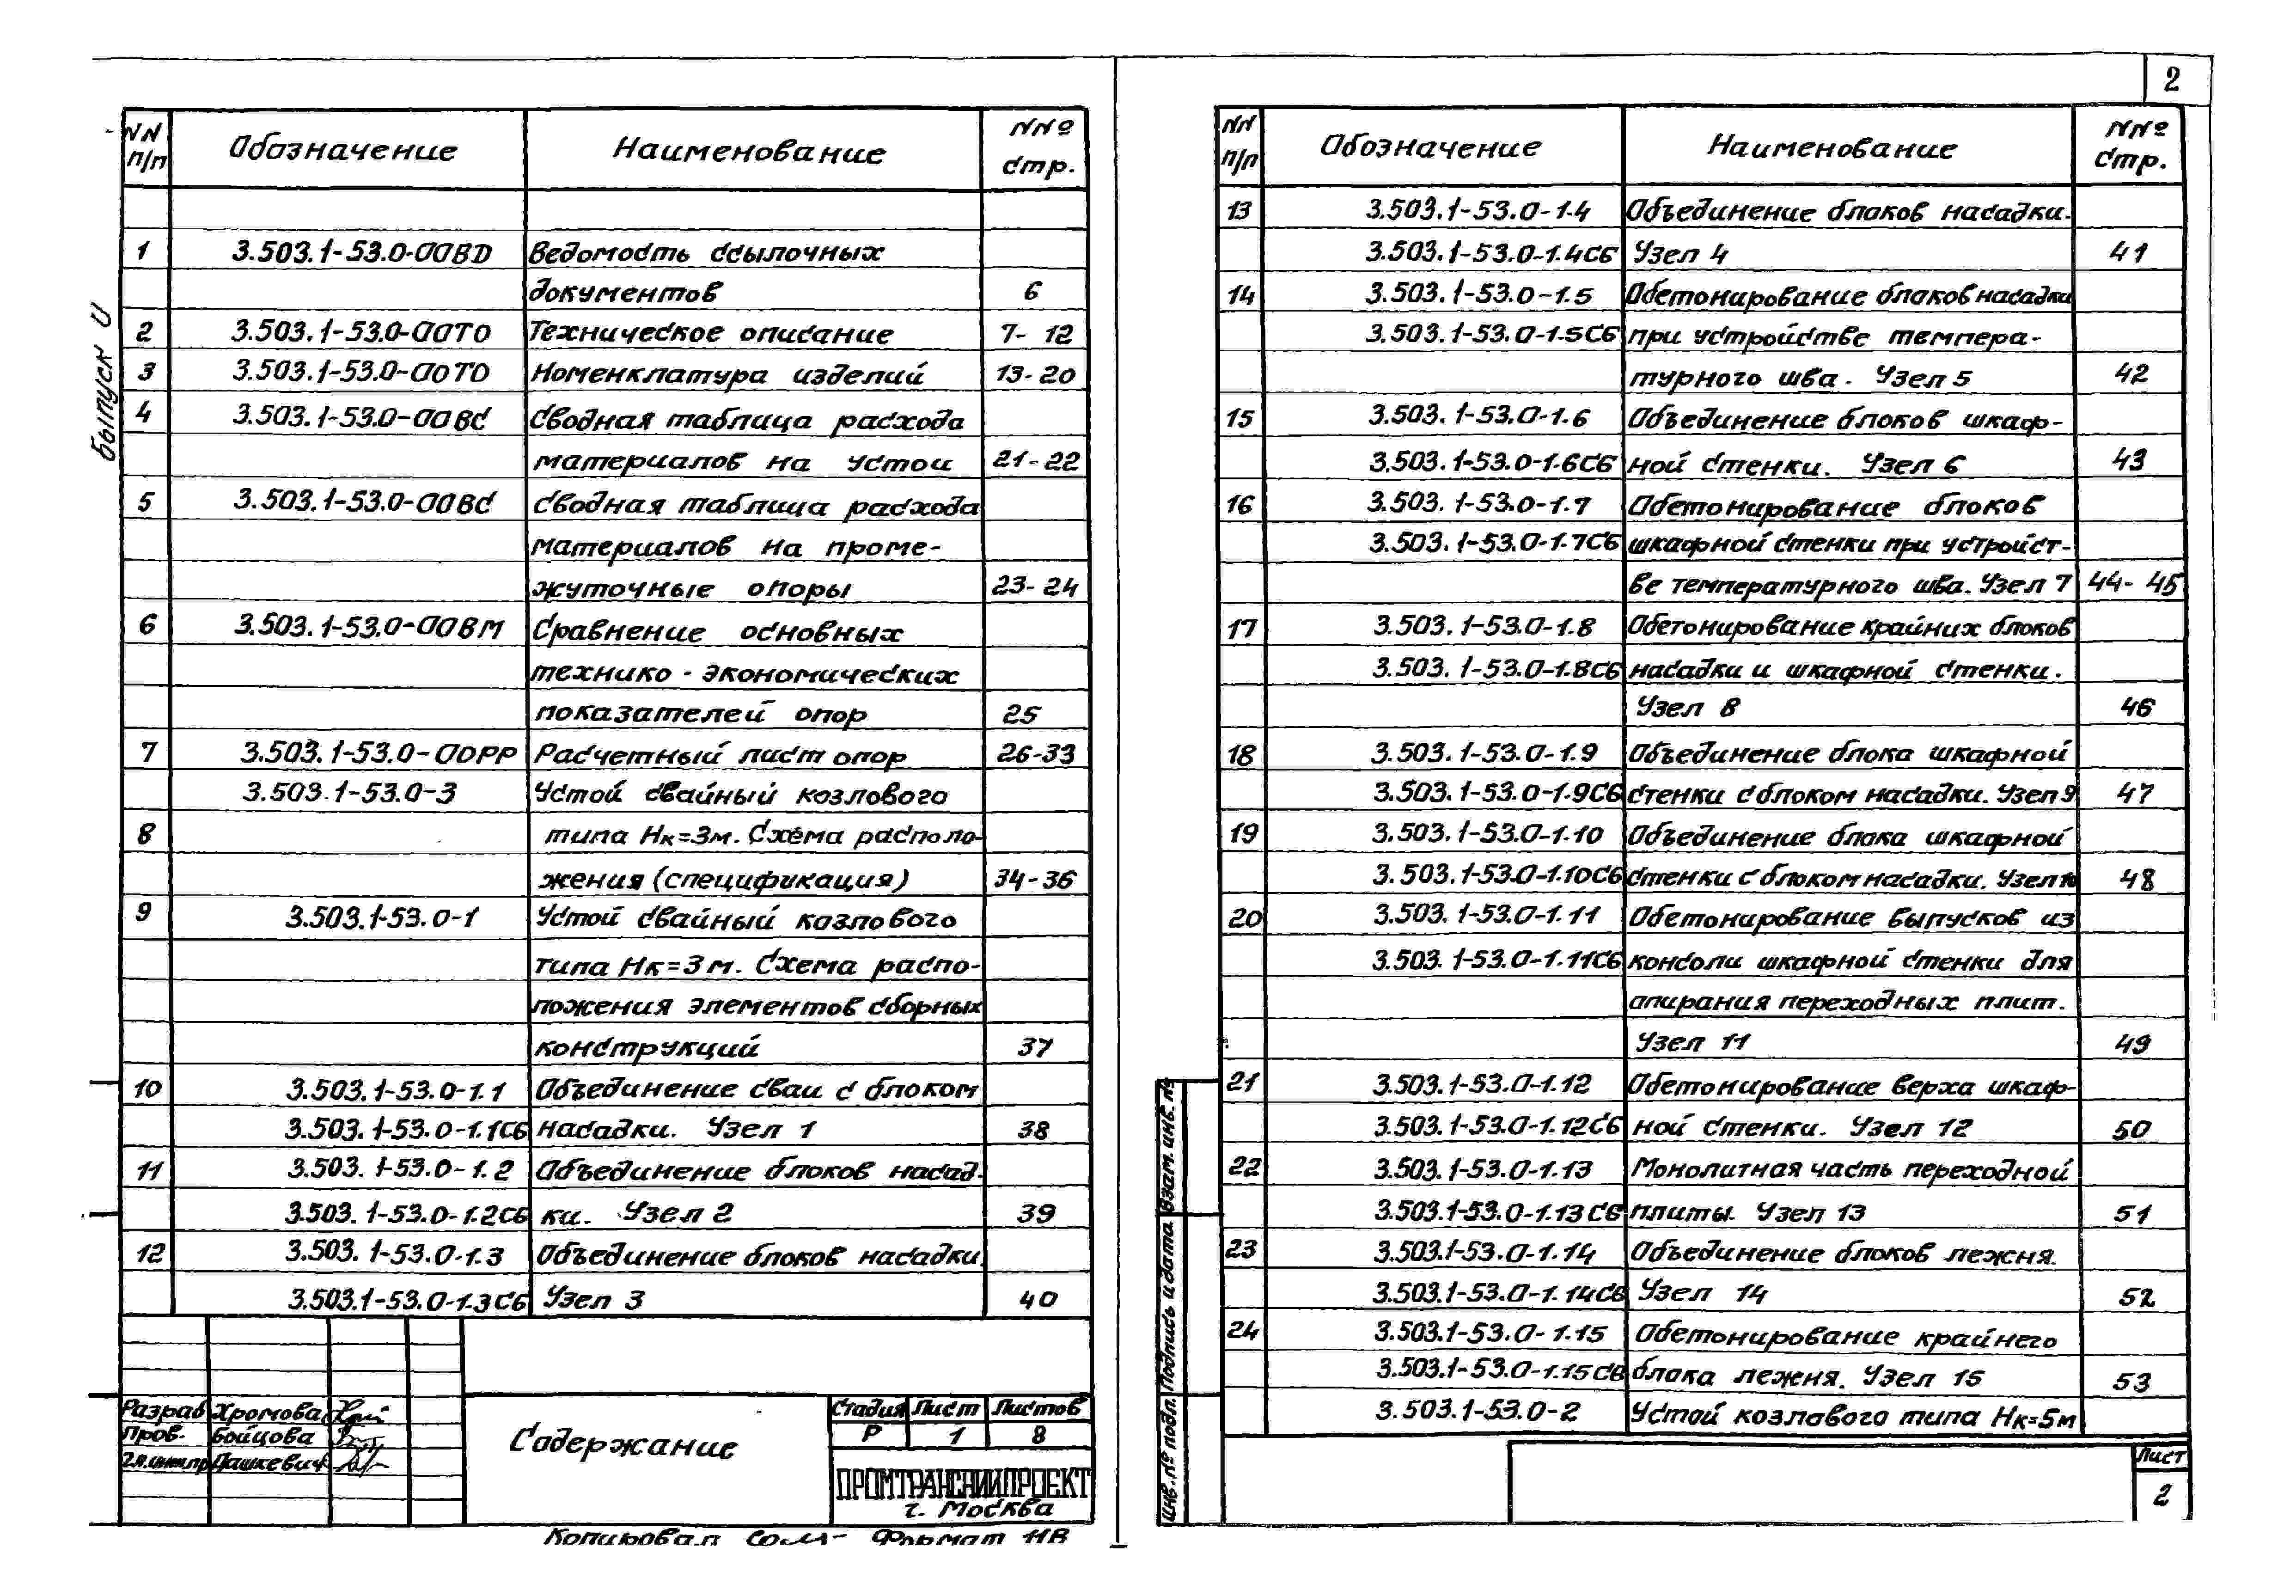 2
Выпуск 0
NN п/п Обозначение Наименование NNº стр.
1 3.503.1-53.0-00ВD Ведомость ссылочных
документов 6
2 3.503.1-53.0-00ТО Техническое описание 7-12
3 3.503.1-53.0-00ТО Номенклатура изделий 13-20
4 3.503.1-53.0-00ВС Сводная таблица расхода
материалов на устои 21-22
5 3.503.1-53.0-00ВС Сводная таблица расхода
материалов на проме-
жуточные опоры 23-24
6 3.503.1-53.0-00ВМ Сравнение основных
технико-экономических
показателей опор 25
7 3.503.1-53.0-00РР Расчетный лист опор 26-33
3.503.1-53.0-3 Устой свайный козлового
8 типа Нк=3м. Схема располо-
жения (спецификация) 34-36
9 3.503.1-53.0-1 Устой свайный козлового
типа Нк=3м. Схема распо-
ложения элементов сборных
конструкций 37
10 3.503.1-53.0-1.1 Объединение сваи с блоком
3.503.1-53.0-1.1СБ насадки. Узел 1 38
11 3.503.1-53.0-1.2 Объединение блоков насад-
3.503.1-53.0-1.2СБ ки. Узел 2 39
12 3.503.1-53.0-1.3 Объединение блоков насадки.
3.503.1-53.0-1.3СБ Узел 3 40
Разраб Хромова
Пров. Бойцова
Гл.инж.пр Пашкевич
Содержание
Стадия Лист Листов
Р 1 8
ПРОМТРАНСНИИПРОЕКТ
г. Москва
Копировал Формат 11В
NN п/п Обозначение Наименование NNº стр.
13 3.503.1-53.0-1.4 Объединение блоков насадки.
3.503.1-53.0-1.4СБ Узел 4 41
14 3.503.1-53.0-1.5 Обетонирование блоков насадки
3.503.1-53.0-1.5СБ при устройстве темпера-
турного шва. Узел 5 42
15 3.503.1-53.0-1.6 Объединение блоков шкаф-
3.503.1-53.0-1.6СБ ной стенки. Узел 6 43
16 3.503.1-53.0-1.7 Обетонирование блоков
3.503.1-53.0-1.7СБ шкафной стенки при устройст-
ве температурного шва. Узел 7 44-45
17 3.503.1-53.0-1.8 Обетонирование крайних блоков
3.503.1-53.0-1.8СБ насадки и шкафной стенки.
Узел 8 46
18 3.503.1-53.0-1.9 Объединение блока шкафной
3.503.1-53.0-1.9СБ стенки с блоком насадки. Узел 9 47
19 3.503.1-53.0-1.10 Объединение блока шкафной
3.503.1-53.0-1.10СБ стенки с блоком насадки. Узел 10 48
20 3.503.1-53.0-1.11 Обетонирование выпусков из
3.503.1-53.0-1.11СБ консоли шкафной стенки для
опирания переходных плит.
Узел 11 49
21 3.503.1-53.0-1.12 Обетонирование верха шкаф-
3.503.1-53.0-1.12СБ ной стенки. Узел 12 50
22 3.503.1-53.0-1.13 Монолитная часть переходной
3.503.1-53.0-1.13СБ плиты. Узел 13 51
23 3.503.1-53.0-1.14 Объединение блоков лежня.
3.503.1-53.0-1.14СБ Узел 14 52
24 3.503.1-53.0-1.15 Обетонирование крайнего
3.503.1-53.0-1.15СБ блока лежня. Узел 15 53
3.503.1-53.0-2 Устой козлового типа Нк=5м
Инв.№ подл. Подпись и дата Взам. инв. №
Лист
2